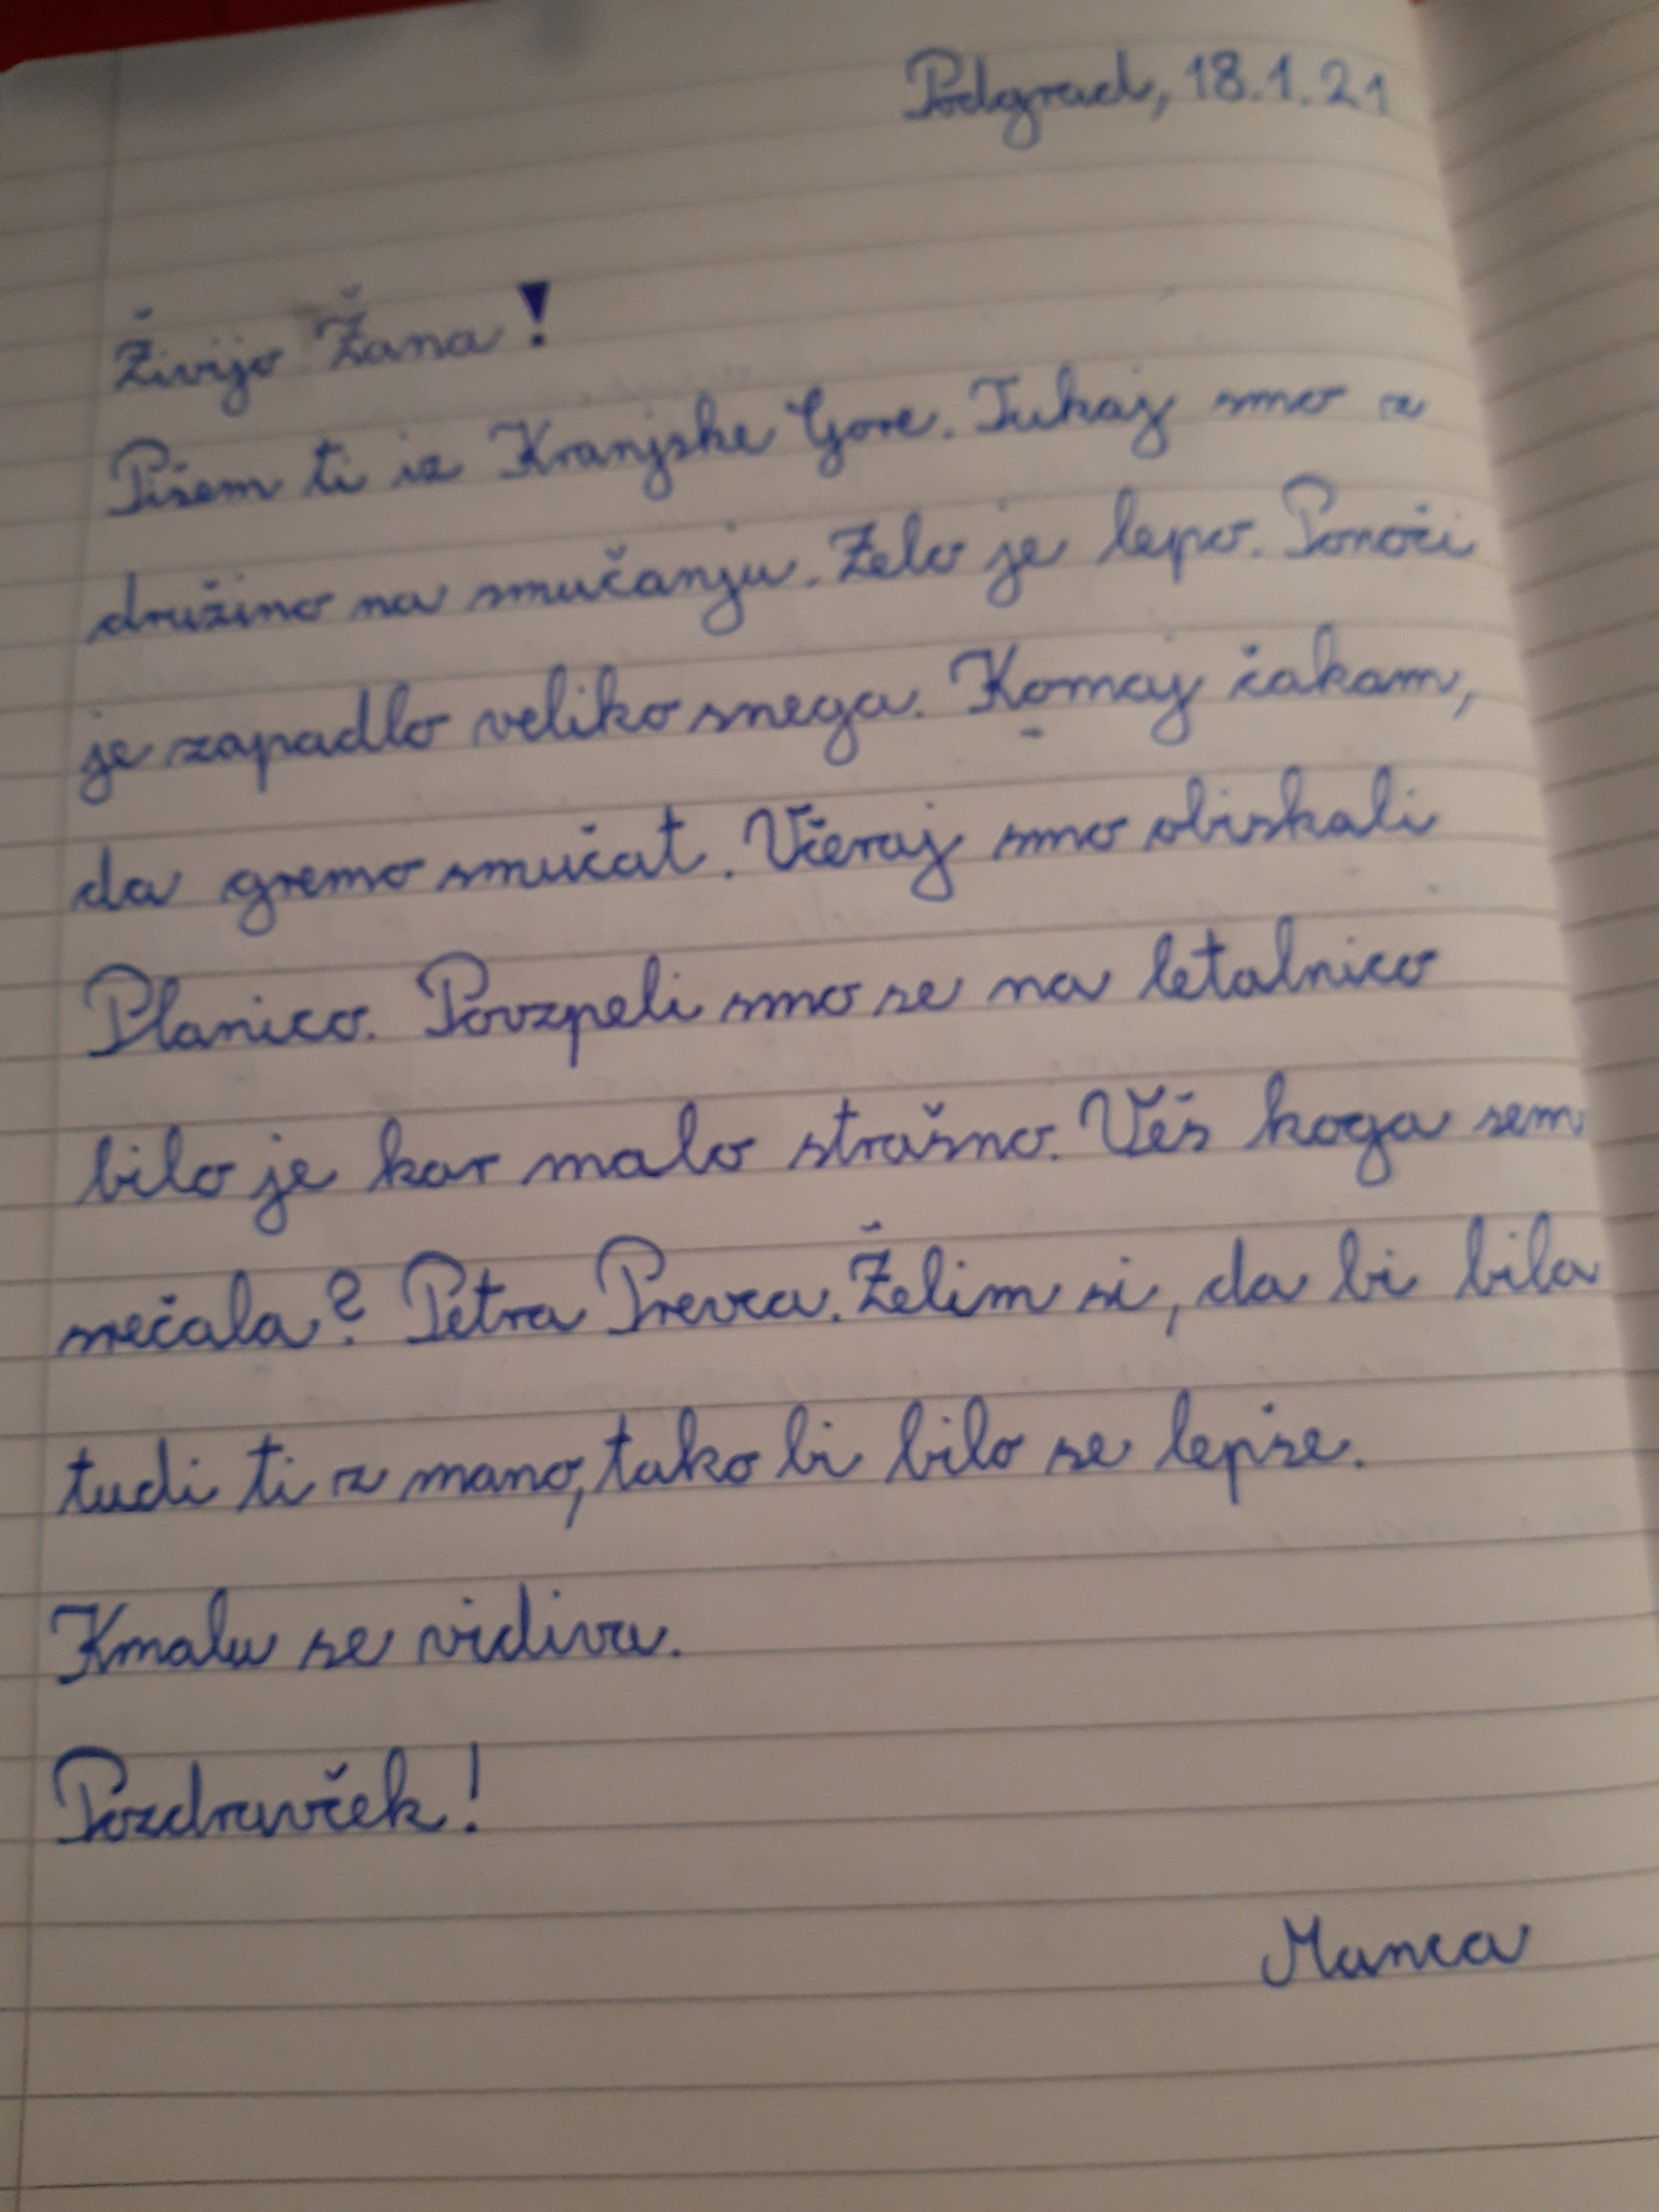 Podgrad, 18.1.21
Živijo Žana!
Pišem ti iz Kranjske Gore. Tukaj smo z
družino na smučanju. Zelo je lepo. Ponoči
je zapadlo veliko snega. Komaj čakam,
da gremo smučat. Včeraj smo obiskali
Planico. Povzpeli smo se na letalnico
bilo je kar malo strašno. Veš koga sem
srečala? Petra Prevca. Želim si, da bi bila
tudi ti z mano, tako bi bilo še lepše.
Kmalu se vidiva.
Pozdravček!
Manca